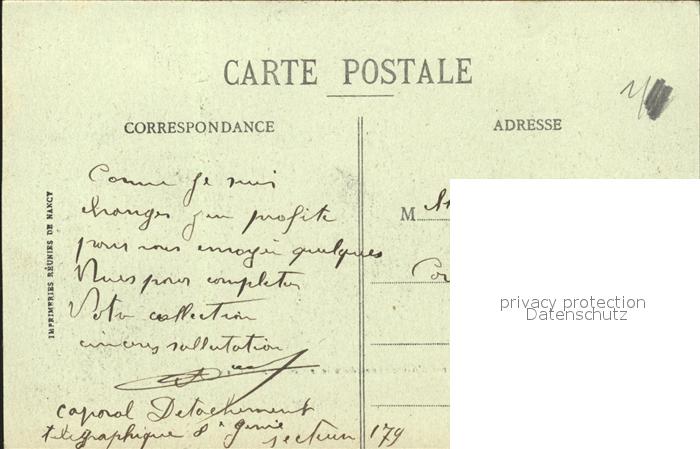 CARTE POSTALE
CORRESPONDANCE
ADRESSE
Comme je suis
changer j'en profite
pour vous envoyer quelques
Vues pour completer
Votre collection
cinceres sallutation
caporal Detachement
telegraphique 8e genie
secteur 179
IMPRIMERIES RÉUNIES DE NANCY
M
privacy protection
Datenschutz